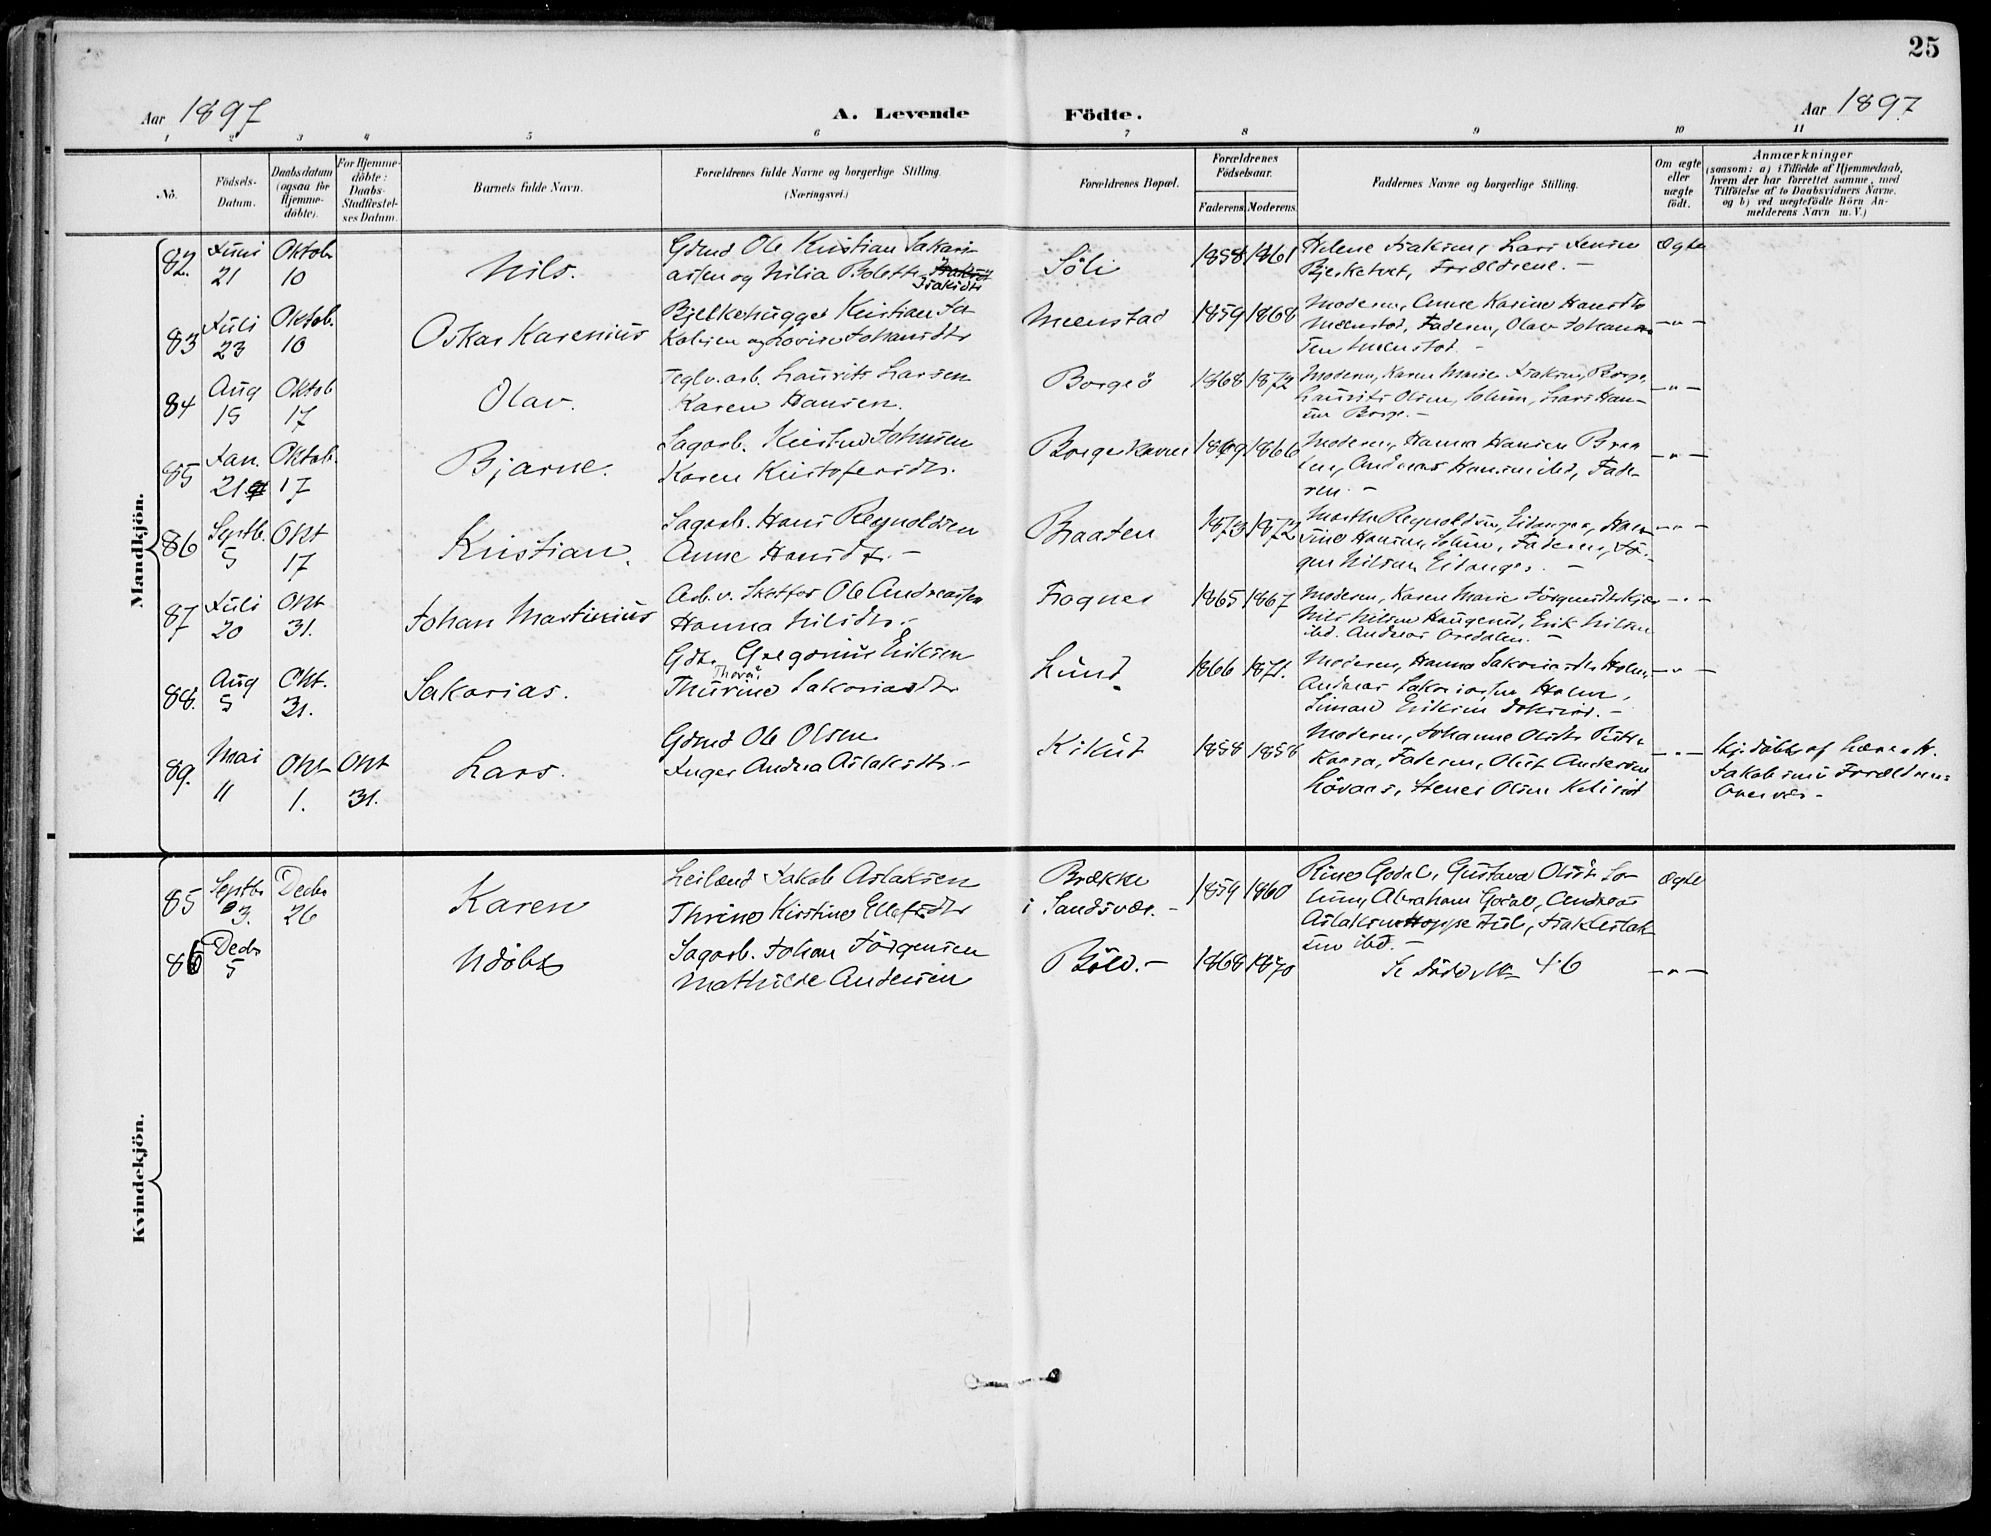 25
Aar 1897
A. Levende Födte.
Aar 1897
1 2 3 4 5 6 7 8 9 10 11
No.
Födsels-Datum.
Daabsdatum (ogsaa for Hjemme-döbte).
For Hjemme-döbte: Daabs-Stadfæstel-ses Datum.
Barnets fulde Navn.
Forældrenes fulde Navne og borgerlige Stilling. (Næringsvei.)
Forældrenes Bopæl.
Forældrenes Födselsaar.
Faderens. Moderens.
Faddernes Navne og borgerlige Stilling.
Om ægte eller uægte födt.
Anmærkninger
(saasom: a) i Tilfælde af Hjemmedaab,
hvem der har forrettet samme, med
Tilföielse af to Daabsvidners Navne.
og b) ved uægtefödte Börn An-
melderens Navn m. V.)
Mandkjön.
82. Juni 21 Oktob. 10
Nils.
Gdmd Ole Kristian Sakari-
assen og Nilia Bolette Isaksdtr
Söli
1858 1861
Helene Isaksen, Lars Jensen
Bjerketvet, Forældrene. –
Ægte
83 Juli 23 Oktob. 10
Oskar Karenius
Bjelkehugger Kristian Ja-
kobsen og Lovise Johansdtr
Menstad
1859 1868
Moderen, Anne Karine Hansdtr
Menstad, Faderen, Olav Johan-
sen Menstad. –
– " –
84 Aug 15 Oktob 17
Olav.
Teglv.arb. Laurits Larsen
Karen Hansen.
Borgeö
1868 1872
Moderen, Karen Marie Isaksen, Borge,
Laurits Olsen, Solum, Lars Han-
sen Borge. –
– " –
85 Jan. 21 Oktob. 17
Bjarne.
Sagarb. Johnsen
Karen Kristofersdtr.
Borgeskaven
1869 1866
Moderen, Hanna Hansen Braa
ten, Andreas Hansen ibd, Fade-
ren. –
– " –
86 Septb. 5 Okt 17
Kristian.
Sagarb. Hans Reynoldsen
Anne Hansdtr. –
Braaten
1873 1872
Marthe Reynoldsen, Eidanger, Han-
sine Hansen, Solum, Faderen, Jör-
gen Nilsen Eidanger. –
– " –
87 Juli 20 Okt 31.
Johan Martinius
Arb. v. Skotfos Ole Andreassen
Hanna Nilsdtr. –
Fragnes
1865 1867
Moderen, Karen Marie Jörgensdtr
Nils Nilsen Haugerud, Erik Nilsen
ibd. Andreas –
– " –
88. Aug 5 Okt. 31.
Sakarias.
Gdbr. Gregorius Eriksen
Thurine Sakariasdtr
Lund
1866 1871.
Moderen, Hanna Sakariasdtr Holm,
Andreas Sakariassen Holm,
Eriksen –
– " –
89. Mai 11 Okt 1. Okt 31.
Lars.
Gdmd Ole Olsen
Inger Andrea Aslaksdtr. –
Kikut
1858 1858
Moderen, Johanne Olsdtr
Faderen, Anderson
Lövaas, Stener Olsen
– " –
Hj. döbt af Lærer H.
Jakobsen Forældrene
Overvær –
Kvindekjön.
85 Septbr 3. Decbr 26
Karen
Leilænd Jakob Aslaksen
Thrine Kirstine Ellefsdtr
Brække
i Sandsvær. –
1859 1860
Rine Godal, Gustava Olsdtr So-
lum, Abraham Godal, Andreas
Aslaksen Hoppe Isak Aslak-
sen ibd. –
Ægte
86 Decbr 5
Udöbt
Sagarb. Johan Jörgensen
Mathilde Andersen
Böle. –
1868 1870
Se 46
– " –